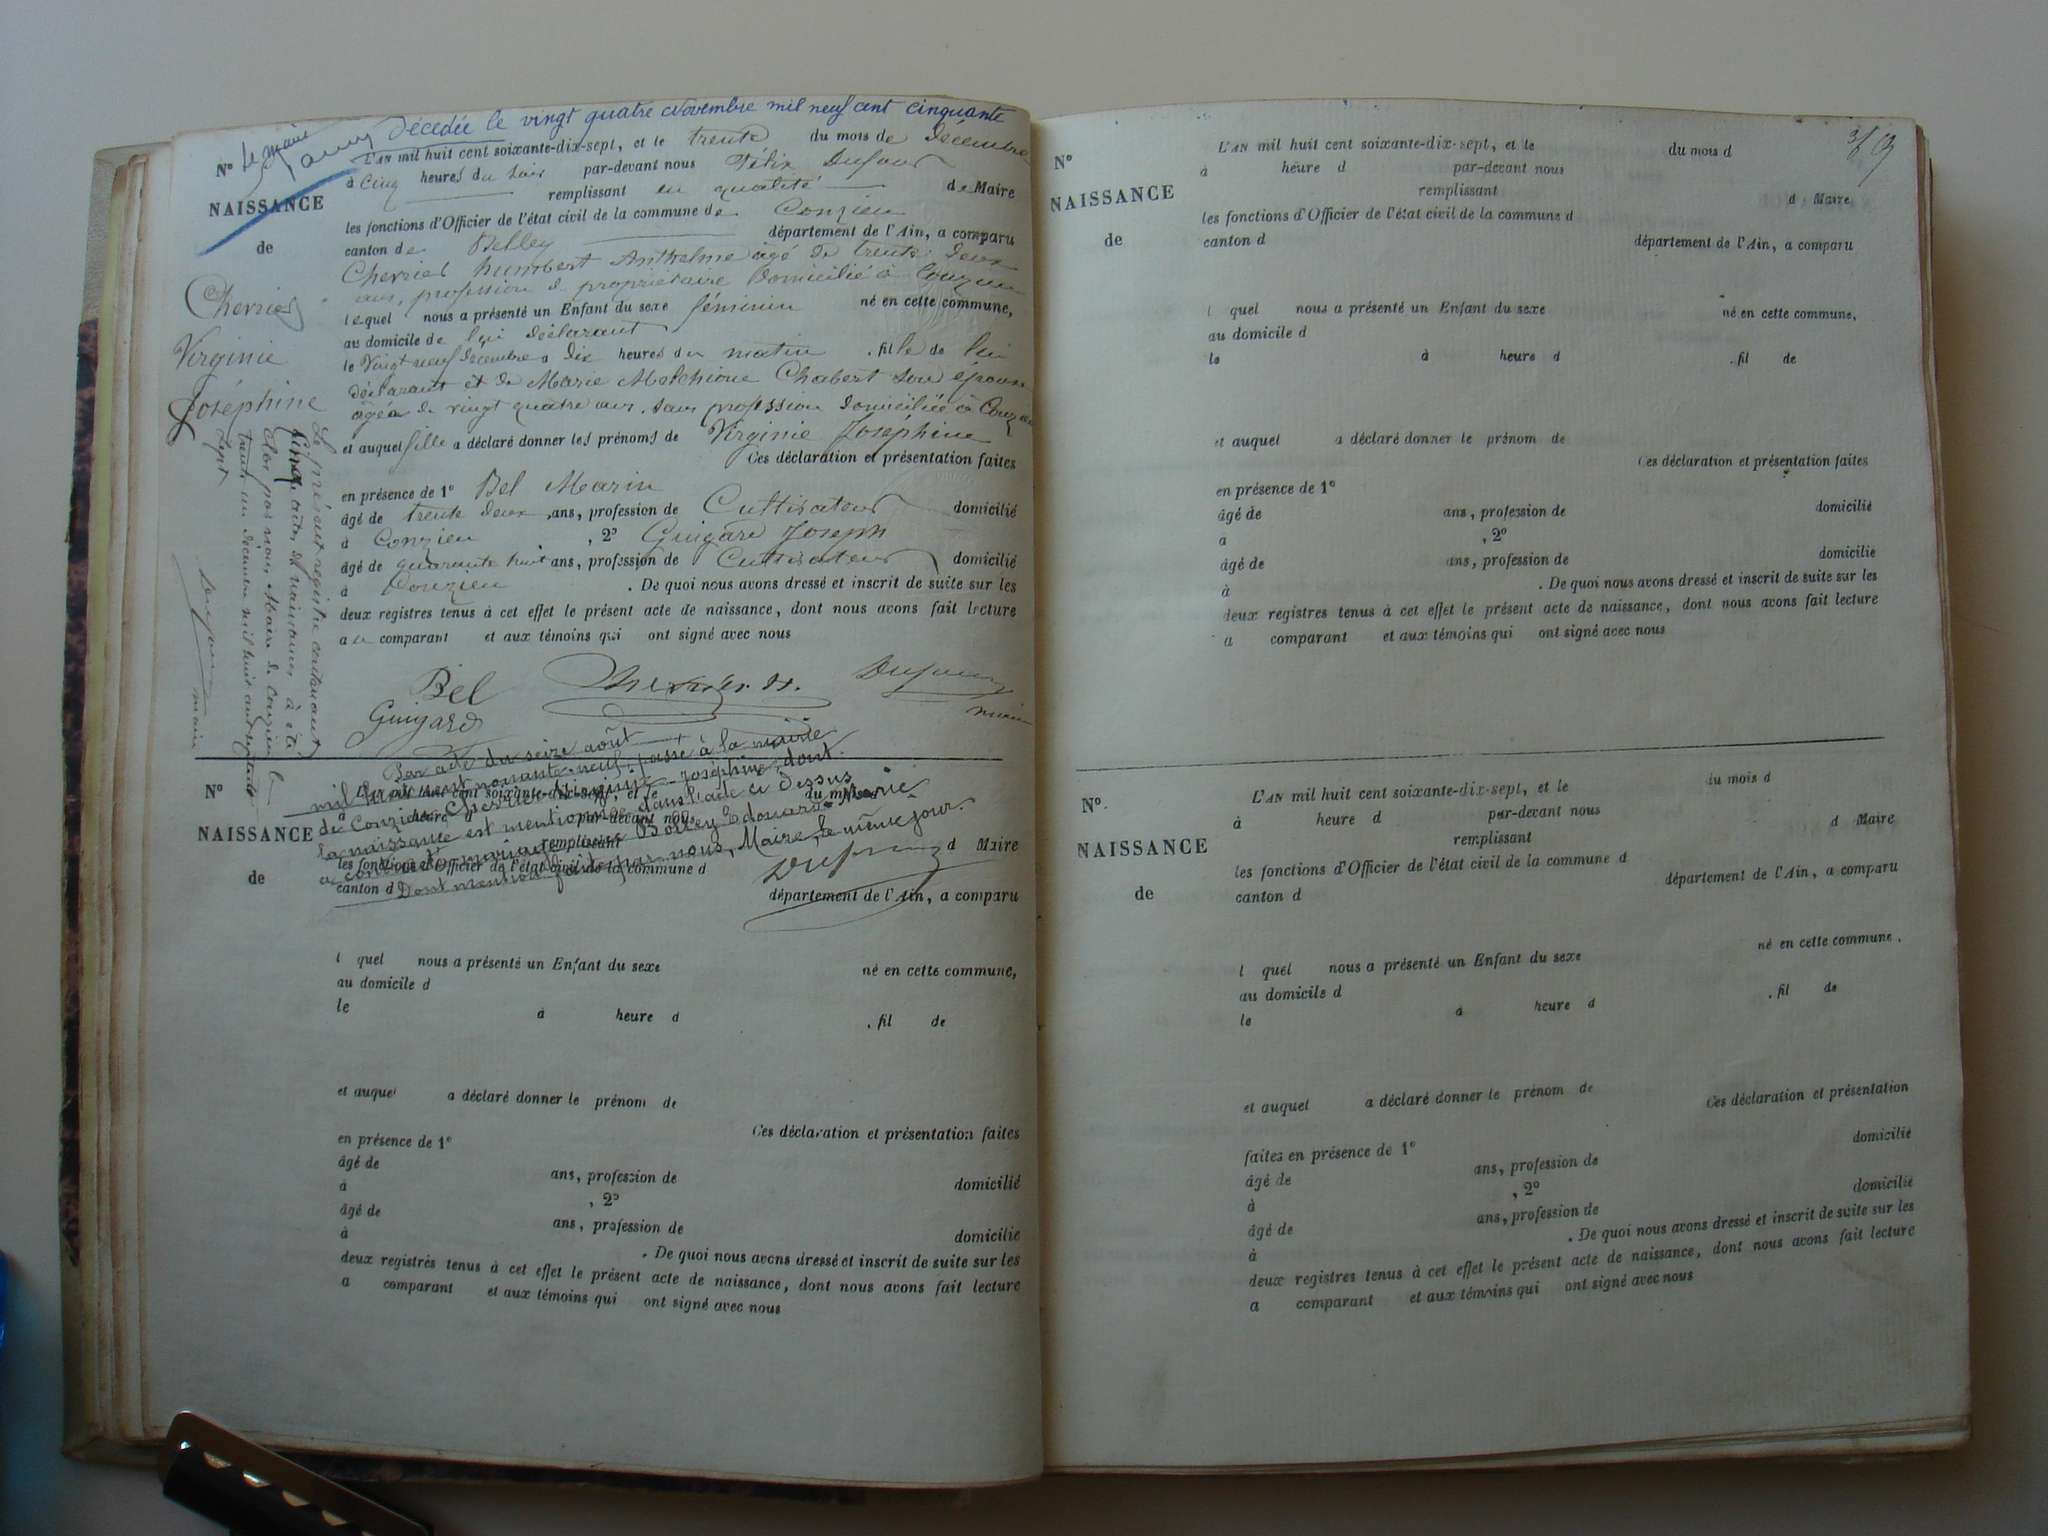 Décedée le vingt quatre Novembre mil neuf cent cinquante
Le maire
N°
NAISSANCE
de
Cherrier
Virginie
Joséphine
L'AN mil huit cent soixante-dix-sept, et le trente du mois de Décembre
à cinq heures du soir par-devant nous Félix Dufour
remplissant en qualité de Maire
les fonctions d'Officier de l'état civil de la commune de Conzieu
canton de Belley département de l'Ain, a comparu
Cherrier humbert Anthelme âgé de trente deux
ans, profession de propriétaire domicilié à Conzieu
lequel nous a présenté un Enfant du sexe féminin né en cette commune,
au domicile de lui déclarant
le Vingt neuf Décembre à dix heures du matin . fille de lui
déclarant et de Marie Melchione Chabert son épouse
âgée de vingt quatre ans, sans profession domiciliée à Conzieu
et auquel fille a déclaré donner les prénoms de Virginie Joséphine
Ces déclaration et présentation faites
en présence de 1° Bel Marin
âgé de trente deux ans, profession de Cultivateur domicilié
à Conzieu , 2° Guigard Joseph
âgé de quarante huit ans, profession de Cultivateur domicilié
à Conzieu . De quoi nous avons dressé et inscrit de suite sur les
deux registres tenus à cet effet le présent acte de naissance, dont nous avons fait lecture
a le comparant et aux témoins qui ont signé avec nous
Bel
Dufour
Guigard
maire
Le présent registre contenant
Cinq actes de naissances a été
clos par nous, Maire de Conzieu le
trente un décembre mil huit cent soixante dix
sept
Dufour
maire
Par acte du seize août
mil huit cent nonante-neuf, passé à la mairie
de Conzieu, Cherrier Virginie Joséphine, dont
la naissance est mentionnée dans l'acte ci-dessus
a contracté mariage Edouard Marie.
Dont mention faite par nous, Maire, le même jour.
Dufour
N°
NAISSANCE
de
L'AN mil huit cent soixante-dix-sept, et le du mois d
à heure d par-devant nous
remplissant d Maire
les fonctions d'Officier de l'état civil de la commune d
canton d
département de l'Ain, a comparu
l quel nous a présenté un Enfant du sexe né en cette commune,
au domicile d
le à heure d . fil de
et auquel a déclaré donner le prénom de
Ces déclaration et présentation faites
en présence de 1°
âgé de ans, profession de domicilié
à , 2°
âgé de ans, profession de domicilié
à . De quoi nous avons dressé et inscrit de suite sur les
deux registres tenus à cet effet le présent acte de naissance, dont nous avons fait lecture
a comparant et aux témoins qui ont signé avec nous
N°
NAISSANCE
de
L'AN mil huit cent soixante-dix-sept, et le du mois d
à heure d par-devant nous
remplissant d Maire
les fonctions d'Officier de l'état civil de la commune d
canton d département de l'Ain, a comparu
l quel nous a présenté un Enfant du sexe né en cette commune,
au domicile d
le à heure d . fil de
et auquel a déclaré donner le prénom de
Ces déclaration et présentation faites
en présence de 1°
âgé de ans, profession de domicilié
à , 2°
âgé de ans, profession de domicilié
à . De quoi nous avons dressé et inscrit de suite sur les
deux registres tenus à cet effet le présent acte de naissance, dont nous avons fait lecture
a comparant et aux témoins qui ont signé avec nous
N°
NAISSANCE
de
L'AN mil huit cent soixante-dix-sept, et le du mois d
à heure d par-devant nous
remplissant d Maire
les fonctions d'Officier de l'état civil de la commune d
canton d département de l'Ain, a comparu
l quel nous a présenté un Enfant du sexe né en cette commune,
au domicile d
le à heure d . fil de
et auquel a déclaré donner le prénom de
Ces déclaration et présentation
faites en présence de 1°
âgé de ans, profession de domicilié
à , 2°
âgé de ans, profession de domicilié
à . De quoi nous avons dressé et inscrit de suite sur les
deux registres tenus à cet effet le présent acte de naissance, dont nous avons fait lecture
a comparant et aux témoins qui ont signé avec nous